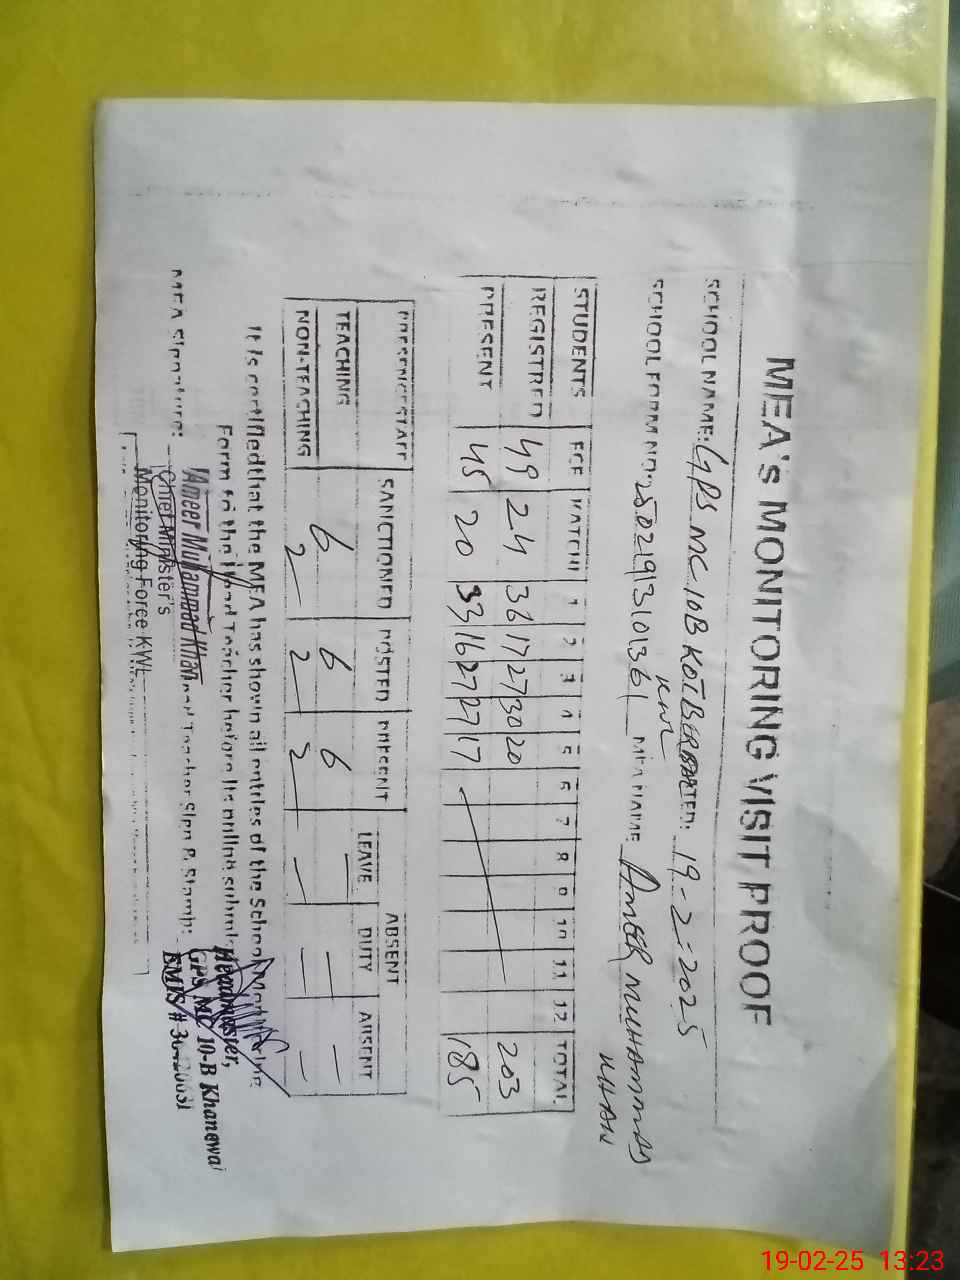 MEA's MONITORING VISIT PROOF
SCHOOL NAME: GPS MC 10B KOT BERBAL DATED: 19-2-2025
KWL
SCHOOL FORM NO: 25021913101361 MEA NAME AMEER MUHAMMAD
KHAN
STUDENTS ECE KATCHI 1 2 3 4 5 6 7 8 9 10 11 12 TOTAL
REGISTRED 49 24 36 17 27 30 20 203
PRESENT 45 20 33 16 27 27 17 185
PRESENCE STAFF SANCTIONED POSTED PRESENT ABSENT
LEAVE DUTY ABSENT
TEACHING 6 6 6 — — —
NON-TEACHING 2 2 2 — — —
It is certified that the MEA has shown all entries of the School Monitoring
Form to the Head Teacher before its online submi
MEA Signature: Ameer Muhammad Khan Head Teacher Sign & Stamp:
Chief Minister's
Monitoring Force KWL
Headmaster,
GPS MC 10-B Khanewal
EMIS #
19-02-25 13:23